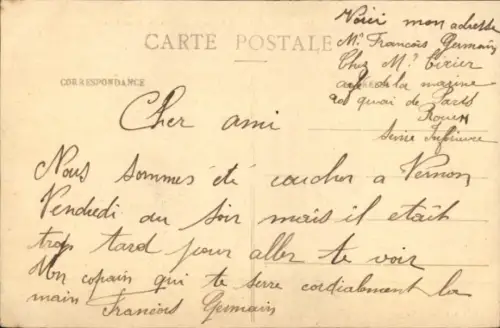 Voici mon adresse
Mr François Germain
Chez Mr Cirier
café de la marine
quai de Paris
Rouen
Seine Inférieure
CARTE POSTALE
CORRESPONDANCE
Cher ami
Nous sommes été coucher a Vernon
Vendredi au soir mais il etait
trop tard pour aller te voir
Mon copain qui te serre cordialement la
main François Germain